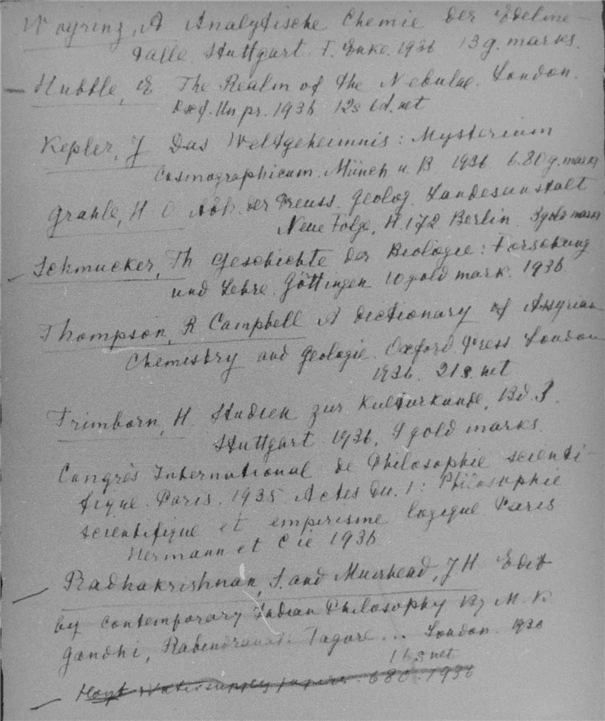 Wogrinz, A Analytische Chemie der Edelme-
talle. Stuttgart F. Enke. 1936 13 g. marks.
Hubble, E The Realm of the Nebulae. London.
Oxf. Un pr. 1936 12s 6d. net
Kepler, J Das Weltgeheimnis: Mysterium
Cosmographicum. Münch u. B 1936 6.80 g. marks
Grahle, H. O Abh. der Preuss. Geolog. Landesanstalt
Neue Folge, H. 172. Berlin. gold marks
Schmucker, Th Geschichte der Biologie: Forschung
und Lehre. Göttingen 10 gold mark. 1936.
Thompson, R Campbell A dictionary of Assyrian
Chemistry and Geologie. Oxford Press London
1936. 21s. net
Trimborn, H Studien zur Kulturkunde, Bd 3.
Stuttgart 1936. 9 gold marks.
Congrès International de Philosophie scienti-
fique. Paris. 1935 Actes du. 1: Philosophie
scientifique et empirisme logique Paris
Hermann et Cie 1936
Radhakrishnan, S. and Muirhead, J H Edit
by Contemporary Indian Philosophy By M. K.
Gandhi, Rabindranath Tagore... London. 1936
16s net
Hoyt Watersupply papers 680. 1936